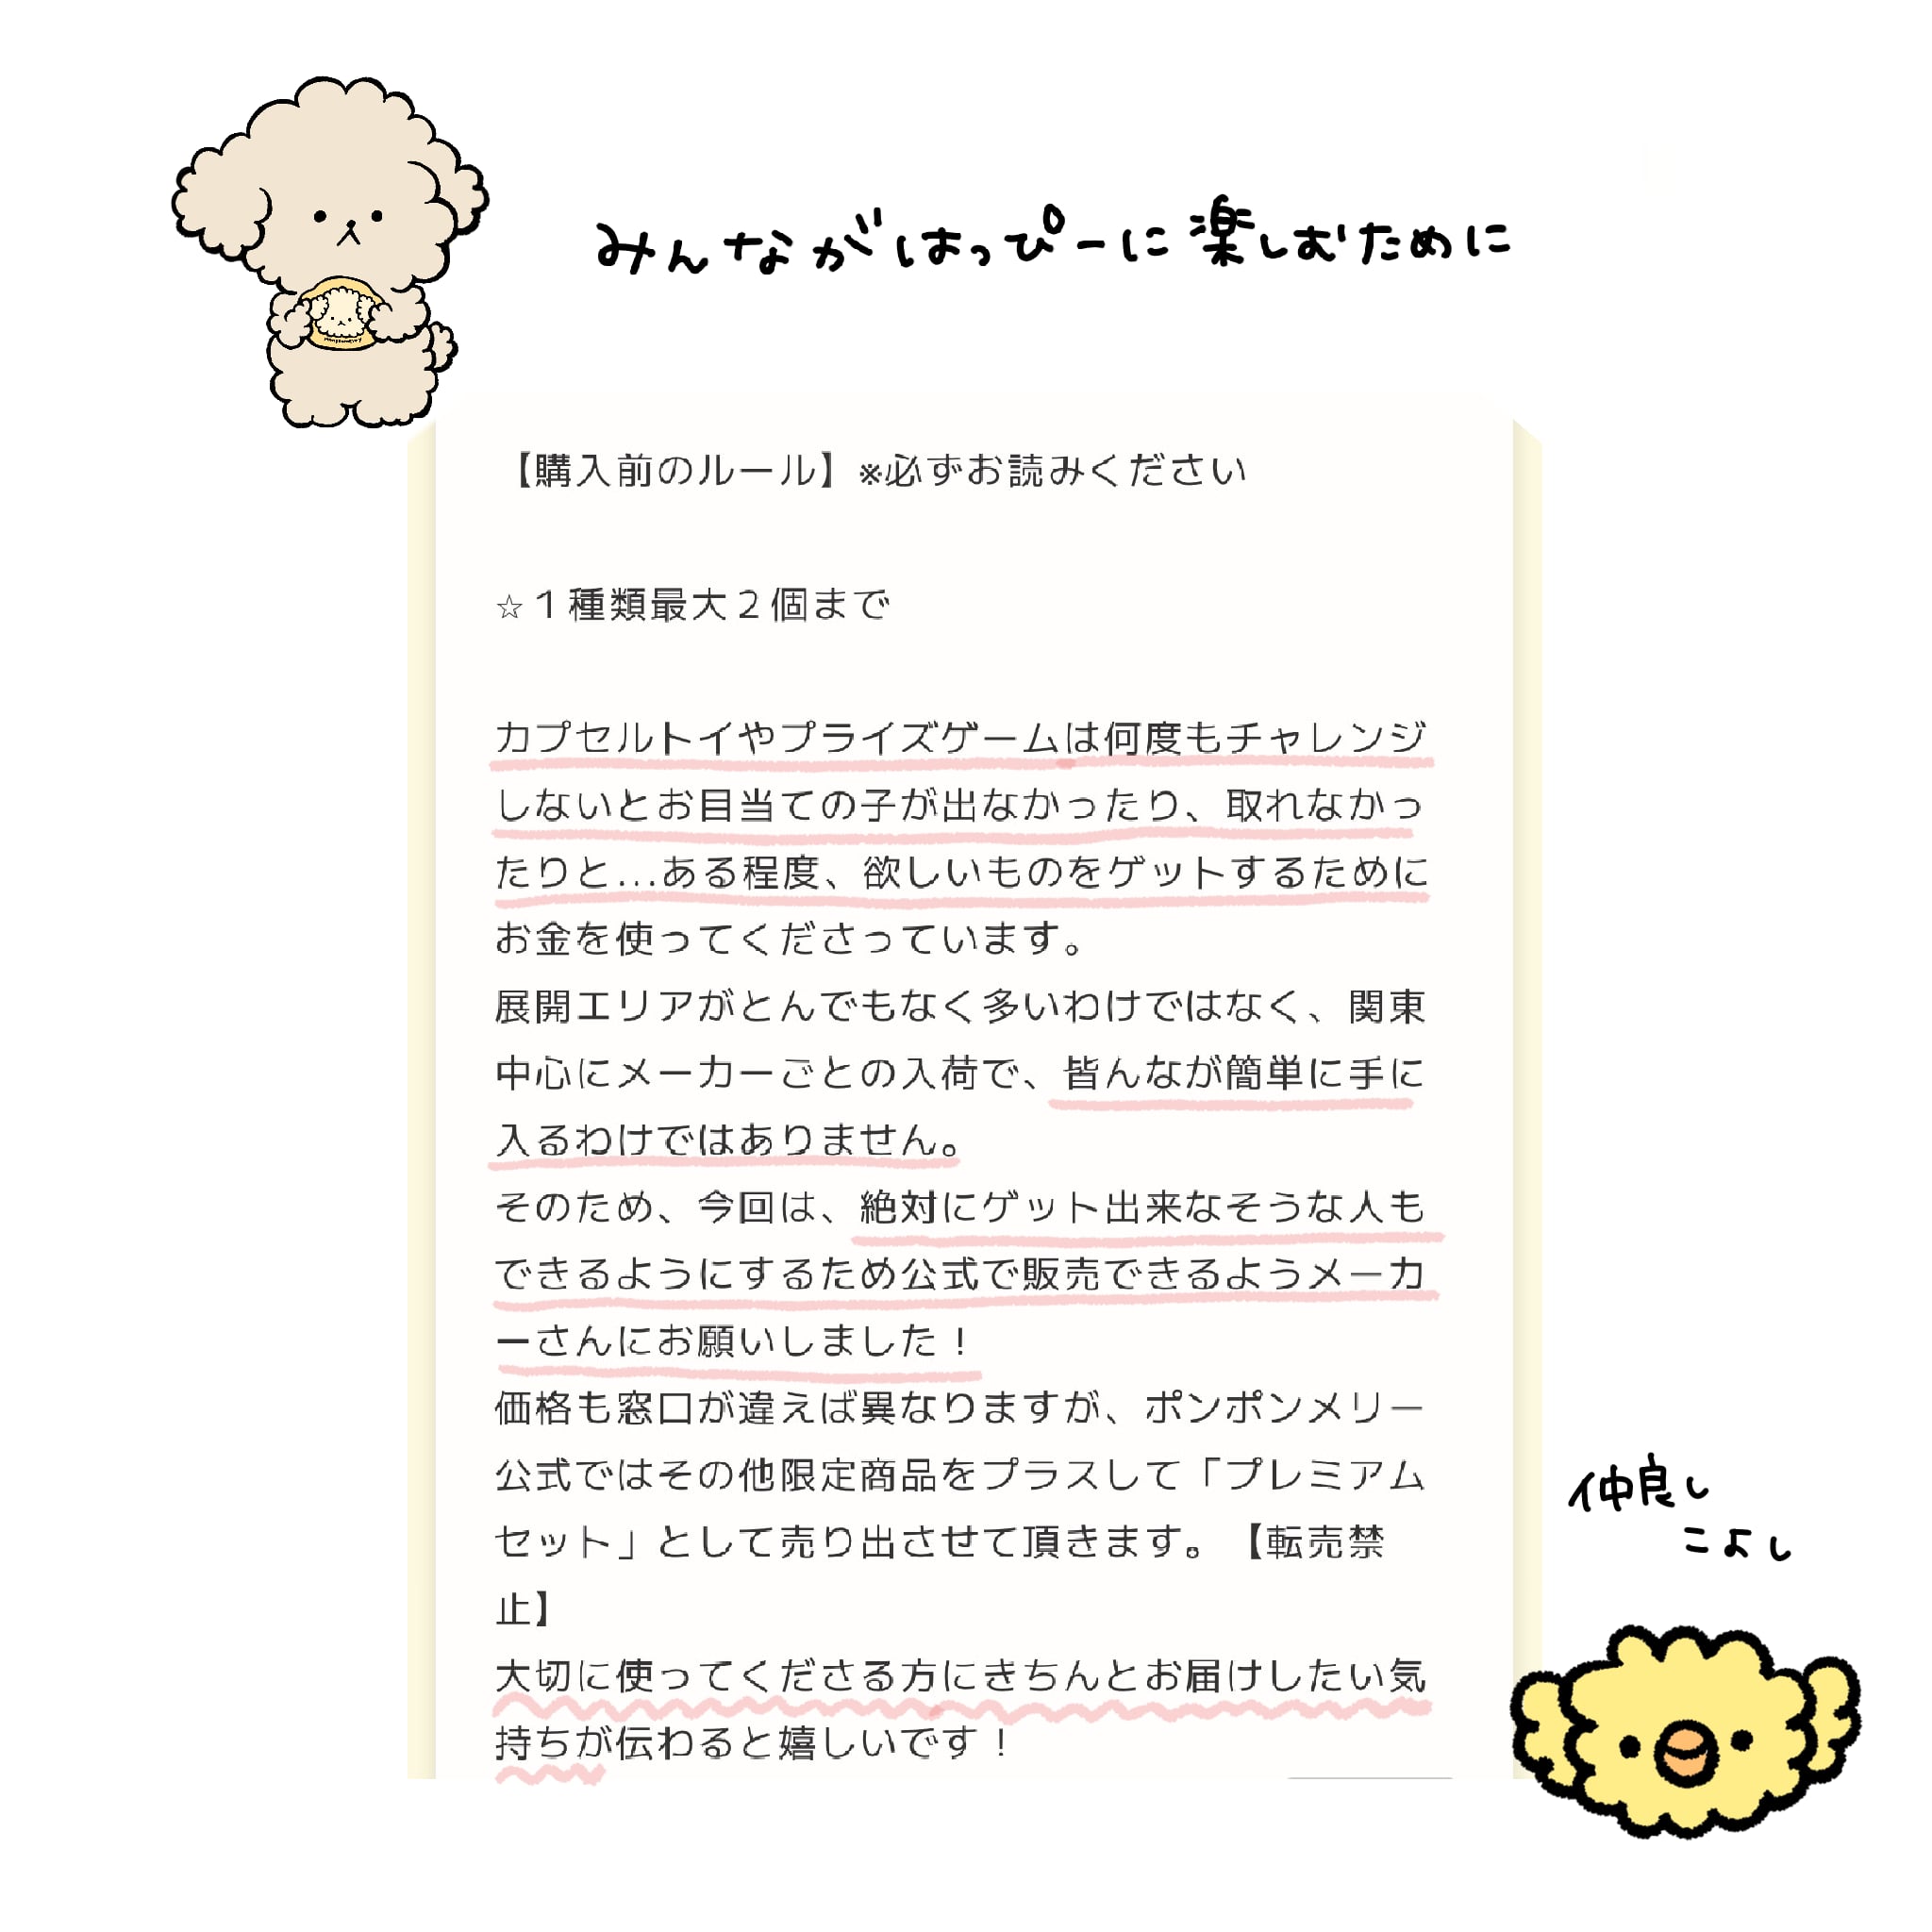 みんながはっぴーに楽しむために
【購入前のルール】※必ずお読みください
☆１種類最大２個まで
カプセルトイやプライズゲームは何度もチャレンジ
しないとお目当ての子が出なかったり、取れなかっ
たりと…ある程度、欲しいものをゲットするために
お金を使ってくださっています。
展開エリアがとんでもなく多いわけではなく、関東
中心にメーカーごとの入荷で、皆んなが簡単に手に
入るわけではありません。
そのため、今回は、絶対にゲット出来なそうな人も
できるようにするため公式で販売できるようメーカ
ーさんにお願いしました！
価格も窓口が違えば異なりますが、ポンポンメリー
公式ではその他限定商品をプラスして「プレミアム
セット」として売り出させて頂きます。【転売禁
止】
大切に使ってくださる方にきちんとお届けしたい気
持ちが伝わると嬉しいです！
仲良し
こよし